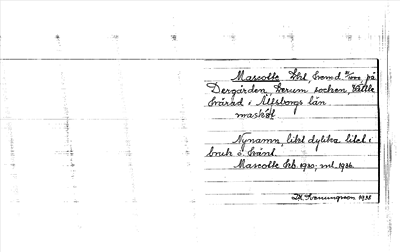 Mascotte lht, hemd. på
Dergården, Lerum socken, Vättle
härad i Älfsborgs län.
maskåt
Nynamn, likt dylika. litet i
bruk o. känt.
Mascotte hb. 1930; ml. 1936.
D.A. Svenungsson 1938